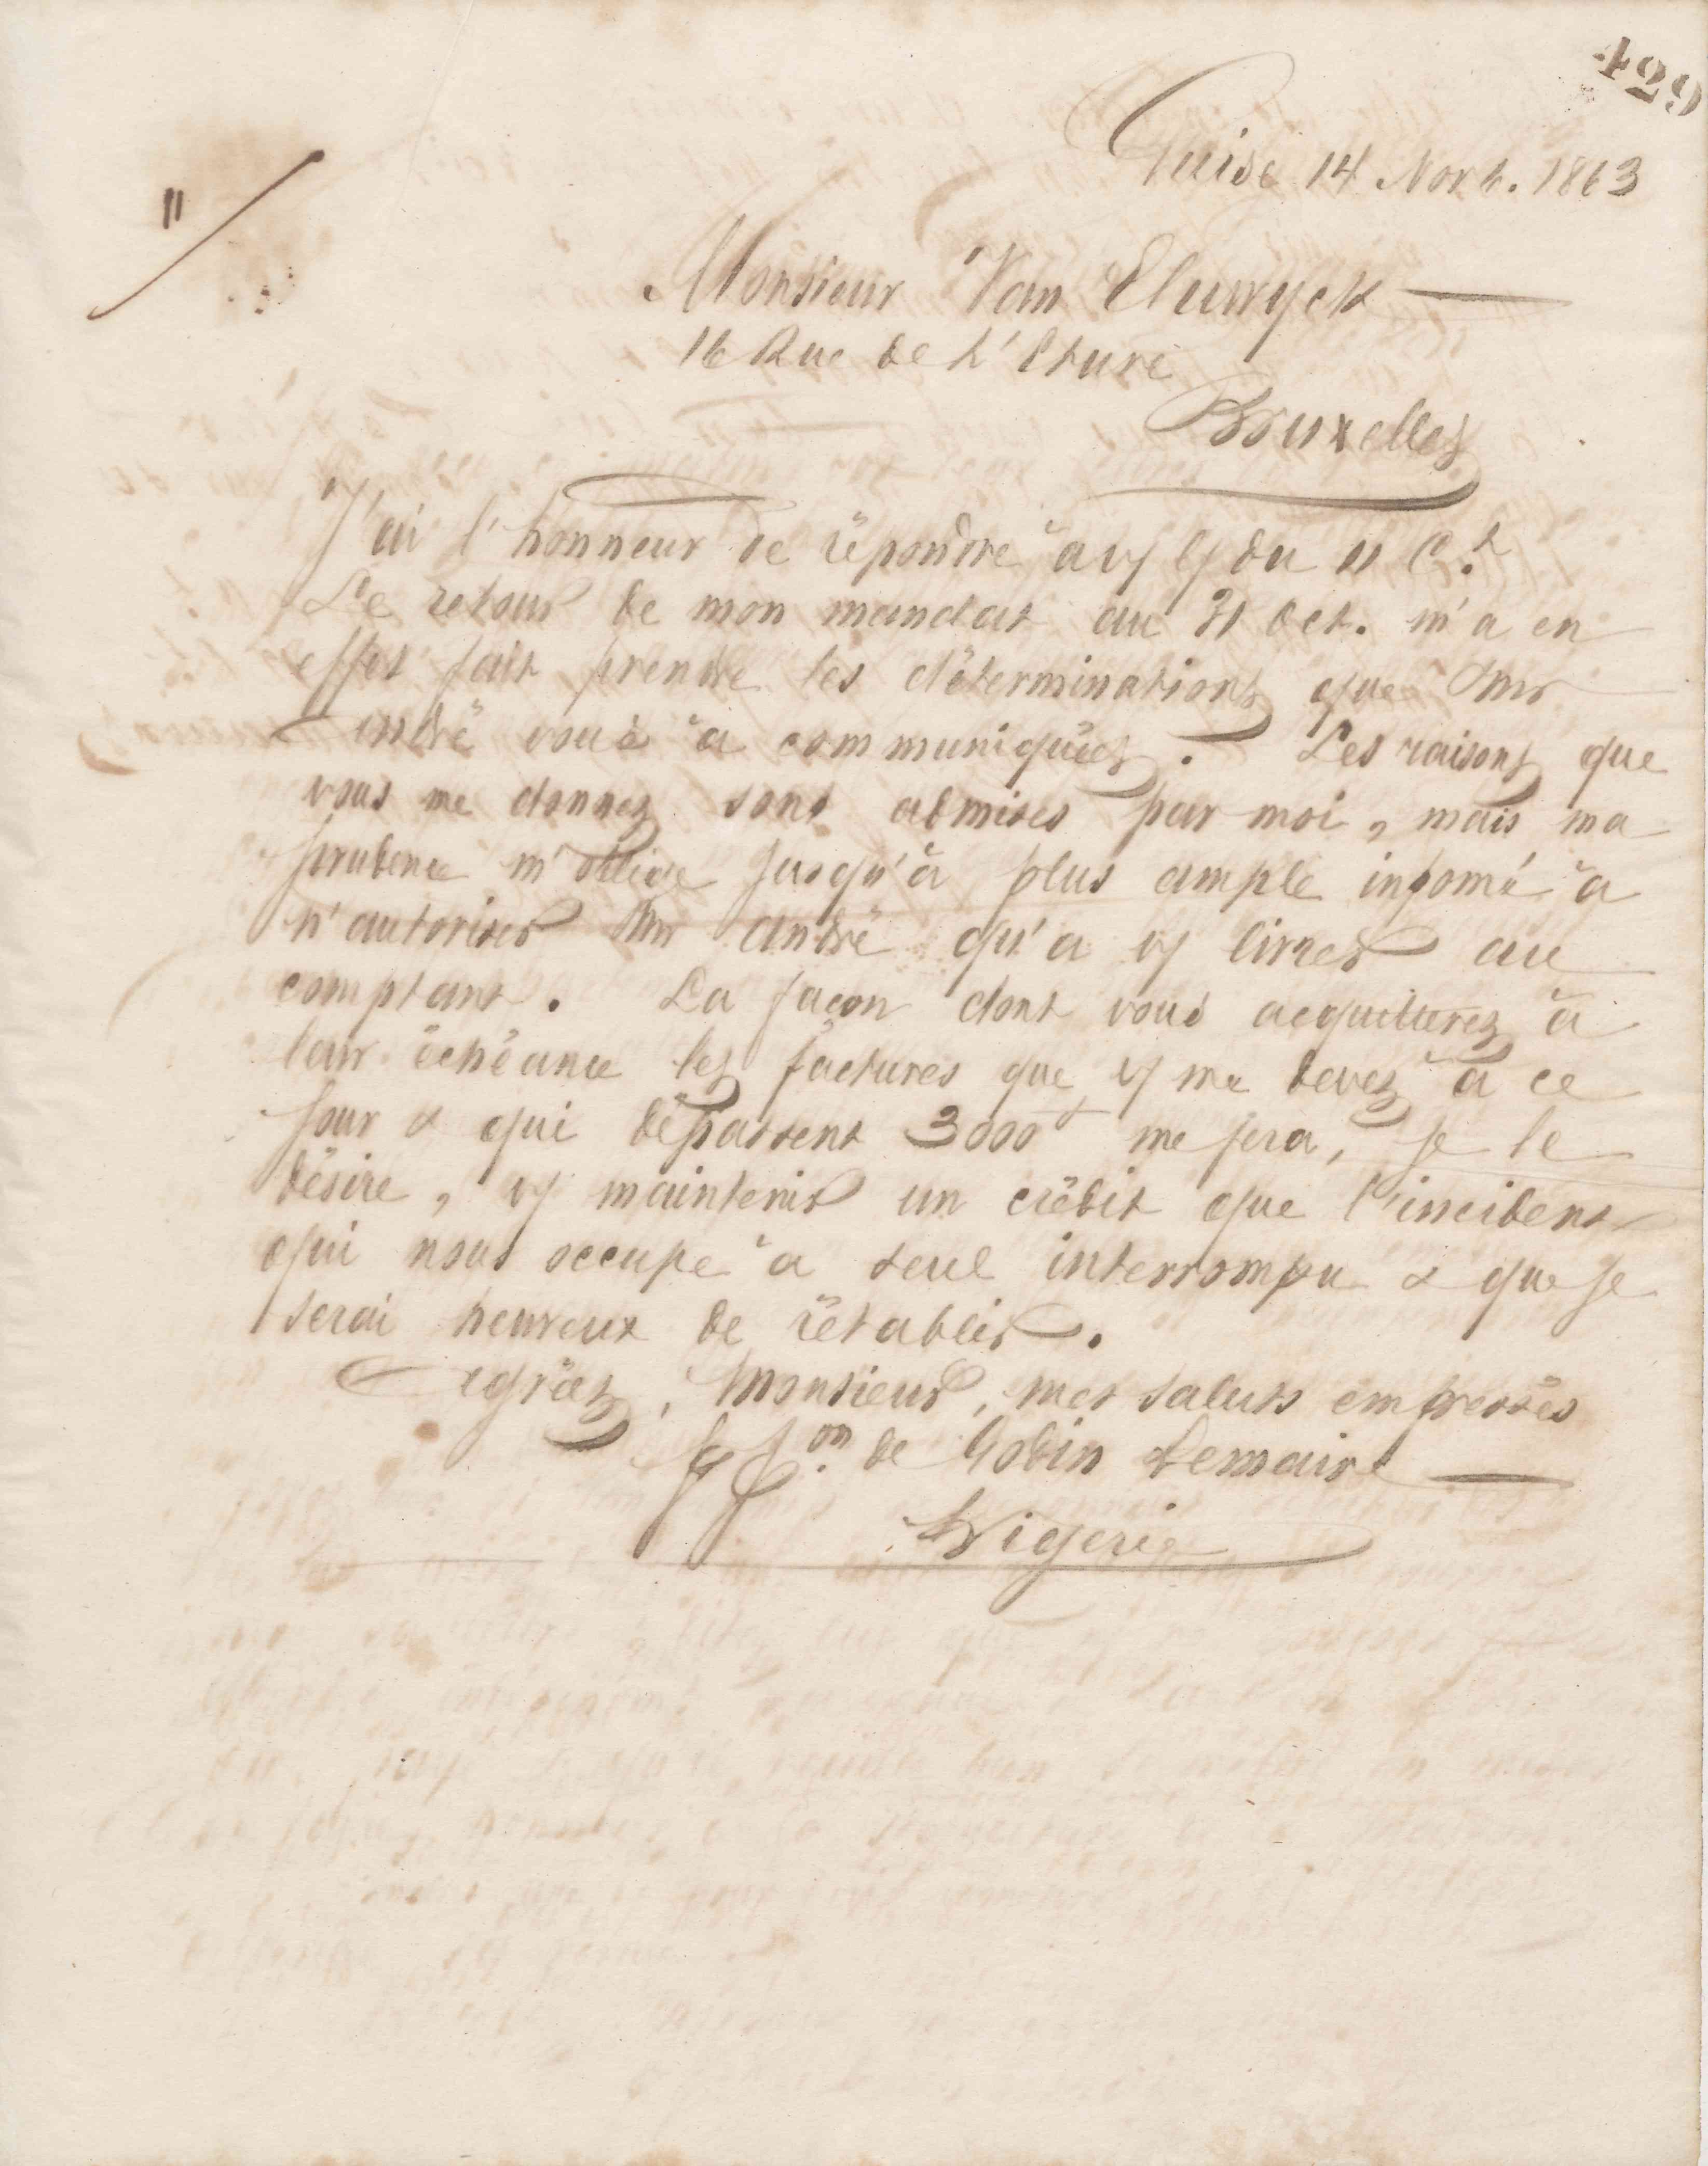 429
Guise 14 Novb. 1863
"
Monsieur Van Elewyck
16 Rue de l'Etuve
Bruxelles
J'ai l'honneur de répondre à v/ l/ du 11 Ct.
Le retour de mon mandat au 31 Oct. m'a en
effet fait prendre les déterminations que Mr
André vous a communiquées. Les raisons que
vous me donnez sont admises par moi, mais ma
prudence m'oblige jusqu'à plus ample informé à
n'autoriser Mr André qu'à v/ livrer au
comptant. La façon dont vous acquitterez à
leur échéance les factures que v/ me devez à ce
jour & qui dépassent 3000f me fera, je le
désire, v/ maintenir un crédit que l'incident
qui nous occupe a seul interrompu & que je
serai heureux de rétablir.
Agréez, Monsieur, mes saluts empressés
de Godin Lemaire